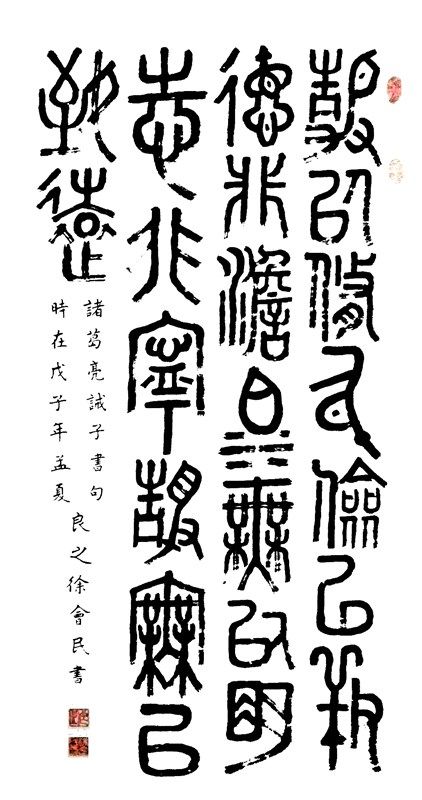 靜以修身儉以養
德非澹泊無以明
志非寧靜無以
致遠
諸葛亮誡子書句
時在戊子年孟夏
良之徐會民書